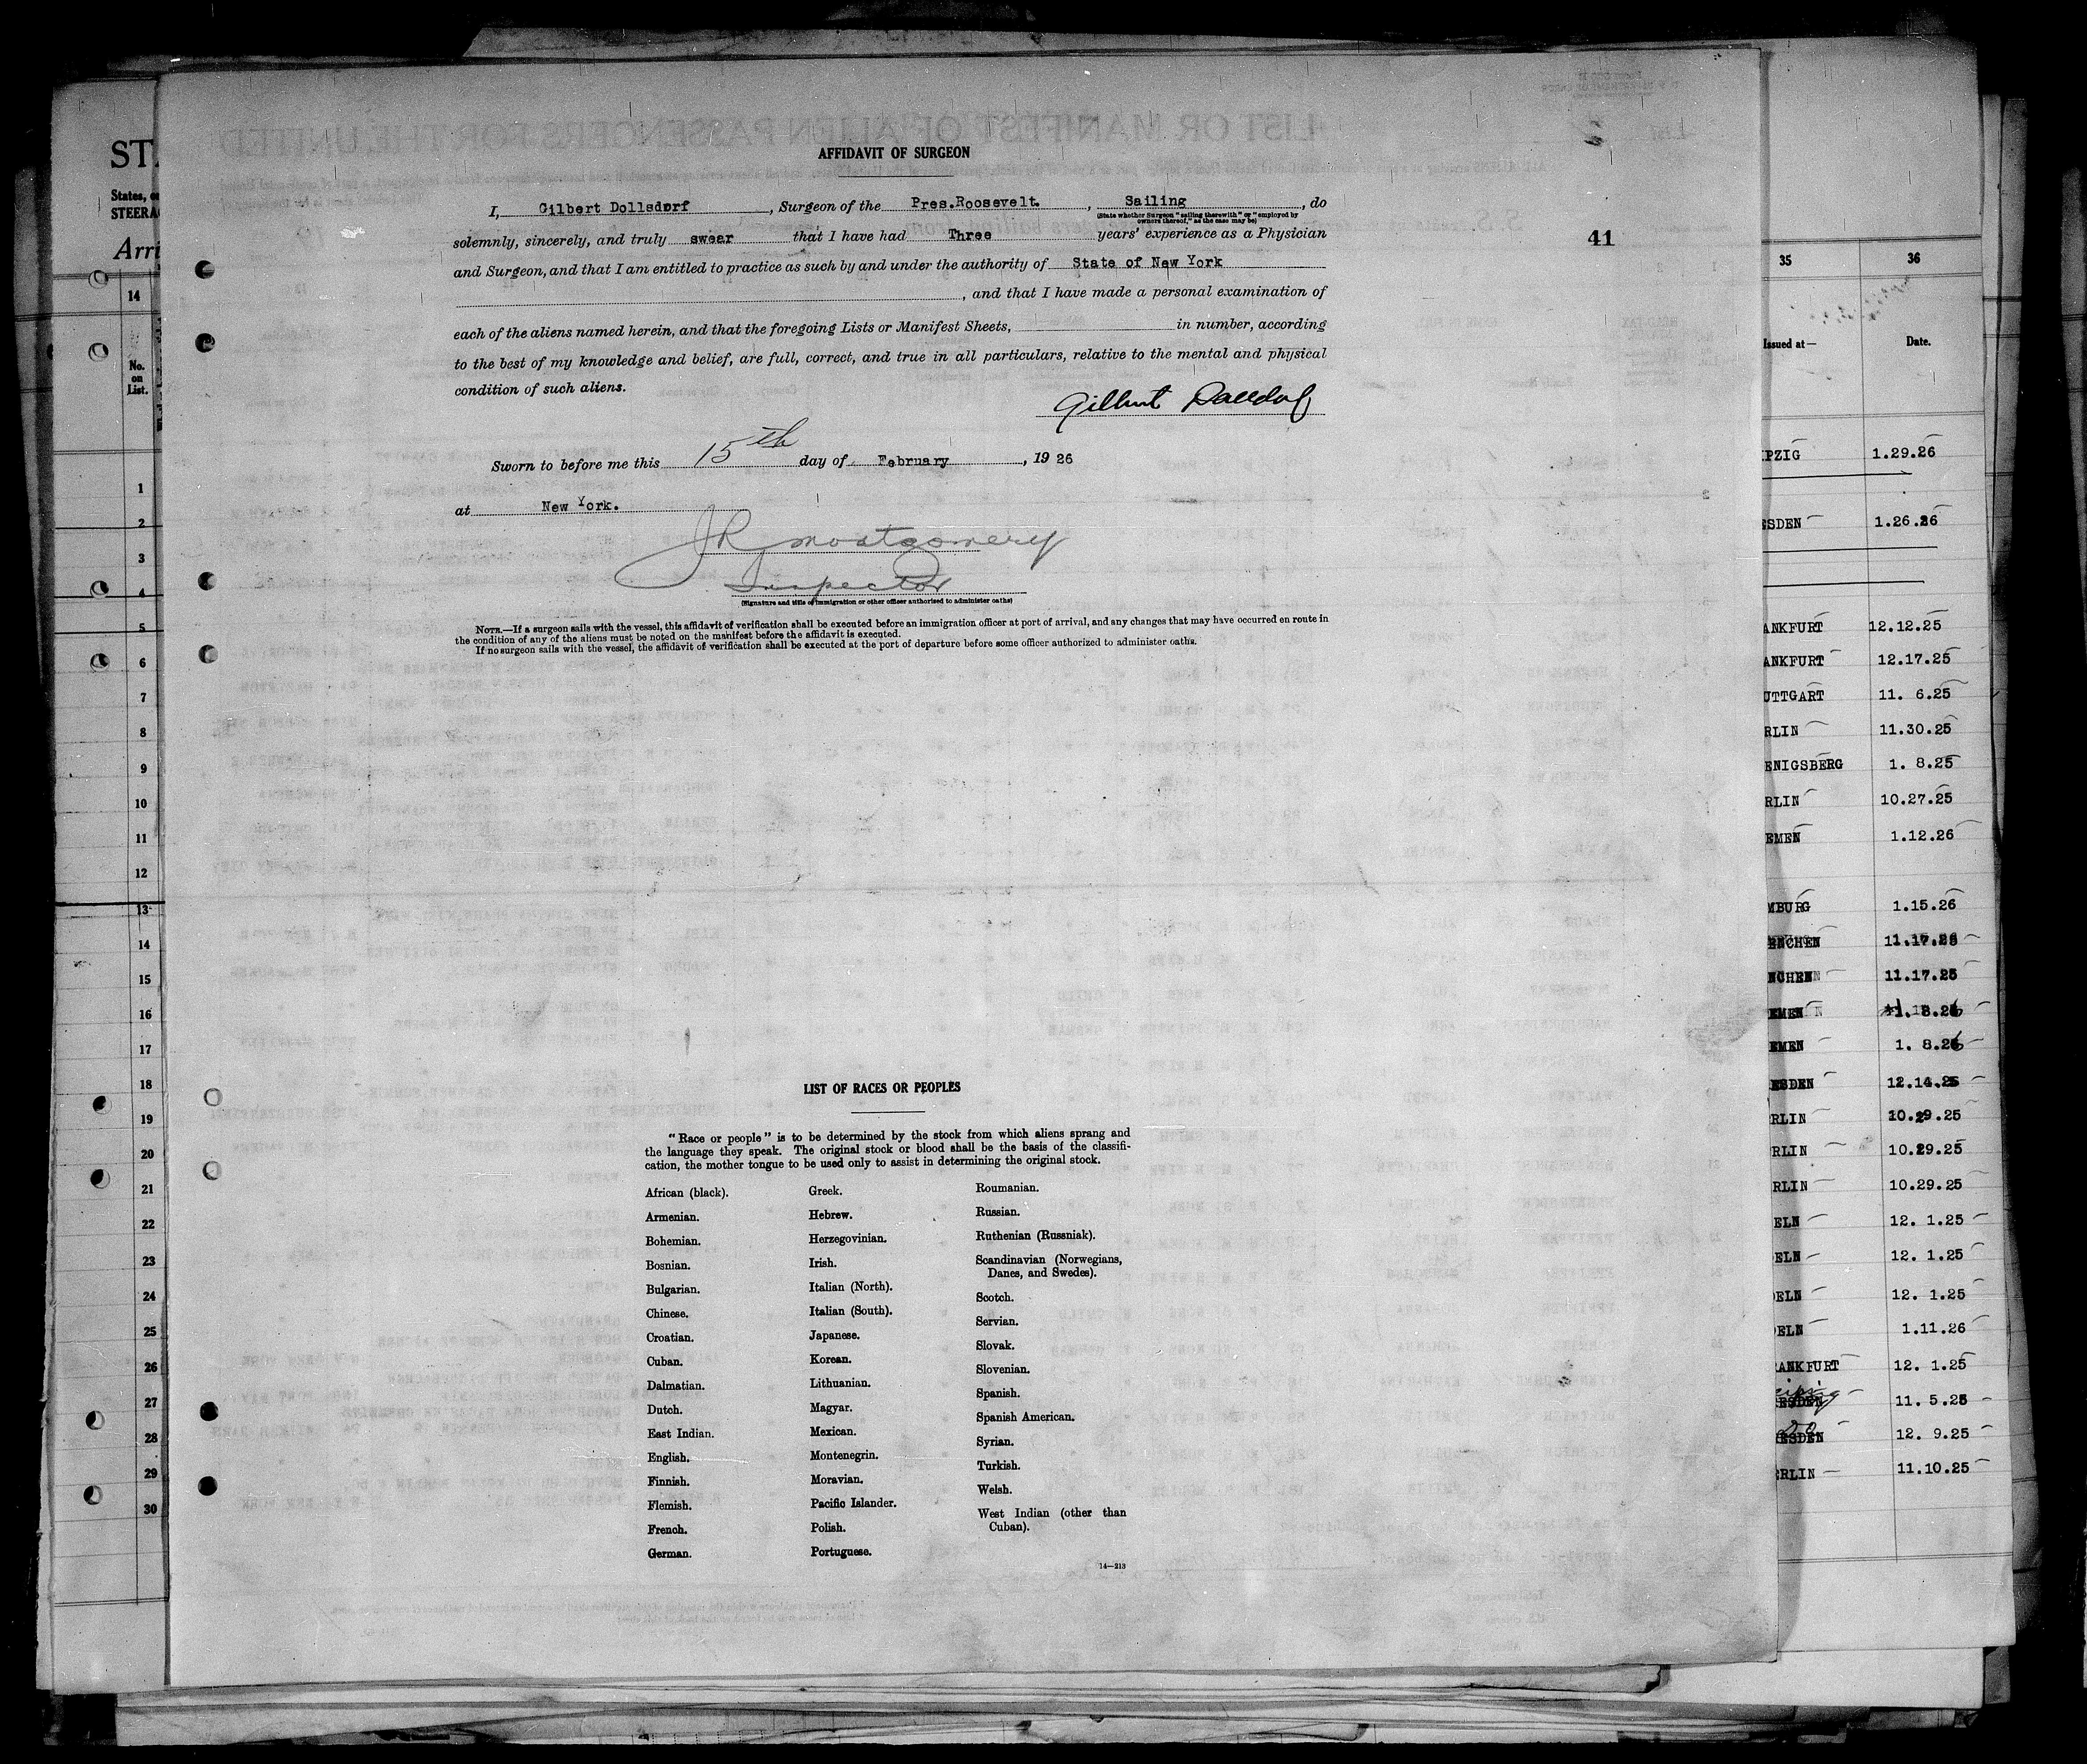 AFFIDAVIT OF SURGEON
I, Gilbert Dollsdorf, Surgeon of the Pres.Roosevelt., Sailing, do
(State whether Surgeon "sailing therewith" or "employed by
owners thereof," as the case may be)
solemnly, sincerely, and truly swear that I have had Three years' experience as a Physician
41
and Surgeon, and that I am entitled to practice as such by and under the authority of State of New York
, and that I have made a personal examination of
each of the aliens named herein, and that the foregoing Lists or Manifest Sheets, in number, according
to the best of my knowledge and belief, are full, correct, and true in all particulars, relative to the mental and physical
condition of such aliens.
Gilbert Dalldorf
Sworn to before me this 15th day of February, 1926
at New York.
JR Montgomery
Inspector
(Signature and title of immigration or other officer authorized to administer oaths)
NOTE.—If a surgeon sails with the vessel, this affidavit of verification shall be executed before an immigration officer at port of arrival, and any changes that may have occurred en route in
the condition of any of the aliens must be noted on the manifest before the affidavit is executed.
If no surgeon sails with the vessel, the affidavit of verification shall be executed at the port of departure before some officer authorized to administer oaths.
LIST OF RACES OR PEOPLES
"Race or people" is to be determined by the stock from which aliens sprang and
the language they speak. The original stock or blood shall be the basis of the classifi-
cation, the mother tongue to be used only to assist in determining the original stock.
African (black).
Armenian.
Bohemian.
Bosnian.
Bulgarian.
Chinese.
Croatian.
Cuban.
Dalmatian.
Dutch.
East Indian.
English.
Finnish.
Flemish.
French.
German.
Greek.
Hebrew.
Herzegovinian.
Irish.
Italian (North).
Italian (South).
Japanese.
Korean.
Lithuanian.
Magyar.
Mexican.
Montenegrin.
Moravian.
Pacific Islander.
Polish.
Portuguese.
Roumanian.
Russian.
Ruthenian (Russniak).
Scandinavian (Norwegians,
Danes, and Swedes).
Scotch.
Servian.
Slovak.
Slovenian.
Spanish.
Spanish American.
Syrian.
Turkish.
Welsh.
West Indian (other than
Cuban).
14—213
ST
States, o
STEERA
Arri
14
No.
on
List.
1
2
3
4
5
6
7
8
9
10
11
12
13
14
15
16
17
18
19
20
21
22
23
24
25
26
27
28
29
30
35 36
Issued at— Date.
PZIG 1.29.26
SDEN 1.26.26
ANKFURT 12.12.25
ANKFURT 12.17.25
UTTGART 11. 6.25
RLIN 11.30.25
ENIGSBERG 1. 8.25
RLIN 10.27.25
EMEN 1.12.26
MBURG 1.15.26
ENCHEN 11.17.25
NCHEN 11.17.25
EMEN 1. 8.26
EMEN 1. 8.26
ESDEN 12.14.25
RLIN 10.29.25
RLIN 10.29.25
RLIN 10.29.25
ELN 12. 1.25
ELN 12. 1.25
ELN 12. 1.25
ELN 1.11.26
ANKFURT 12. 1.25
ESDEN 11. 5.25
ESDEN 12. 9.25
RLIN 11.10.25